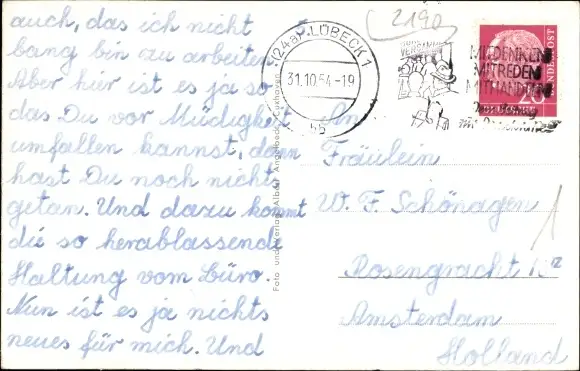 auch, das ich nicht
bang bin zu arbeiten
Aber hier ist es ja so
das Du vor Müdigkeit
umfallen kannst, dann
hast Du noch nicht
getan. Und dazu kommt
die so herablassende
Haltung vom Büro.
Nun ist es ja nichts
neues für mich. Und
Foto und Verlag Albert Angelbeck, Cuxhaven
2190
(24a) LÜBECK 1
31.10.54-19
bb
MITDENKEN
MITREDEN
MITHANDELN
BUNDESPOST
20
An
Fräulein
W. F. Schönagen
Rosengracht
Amsterdam
Holland